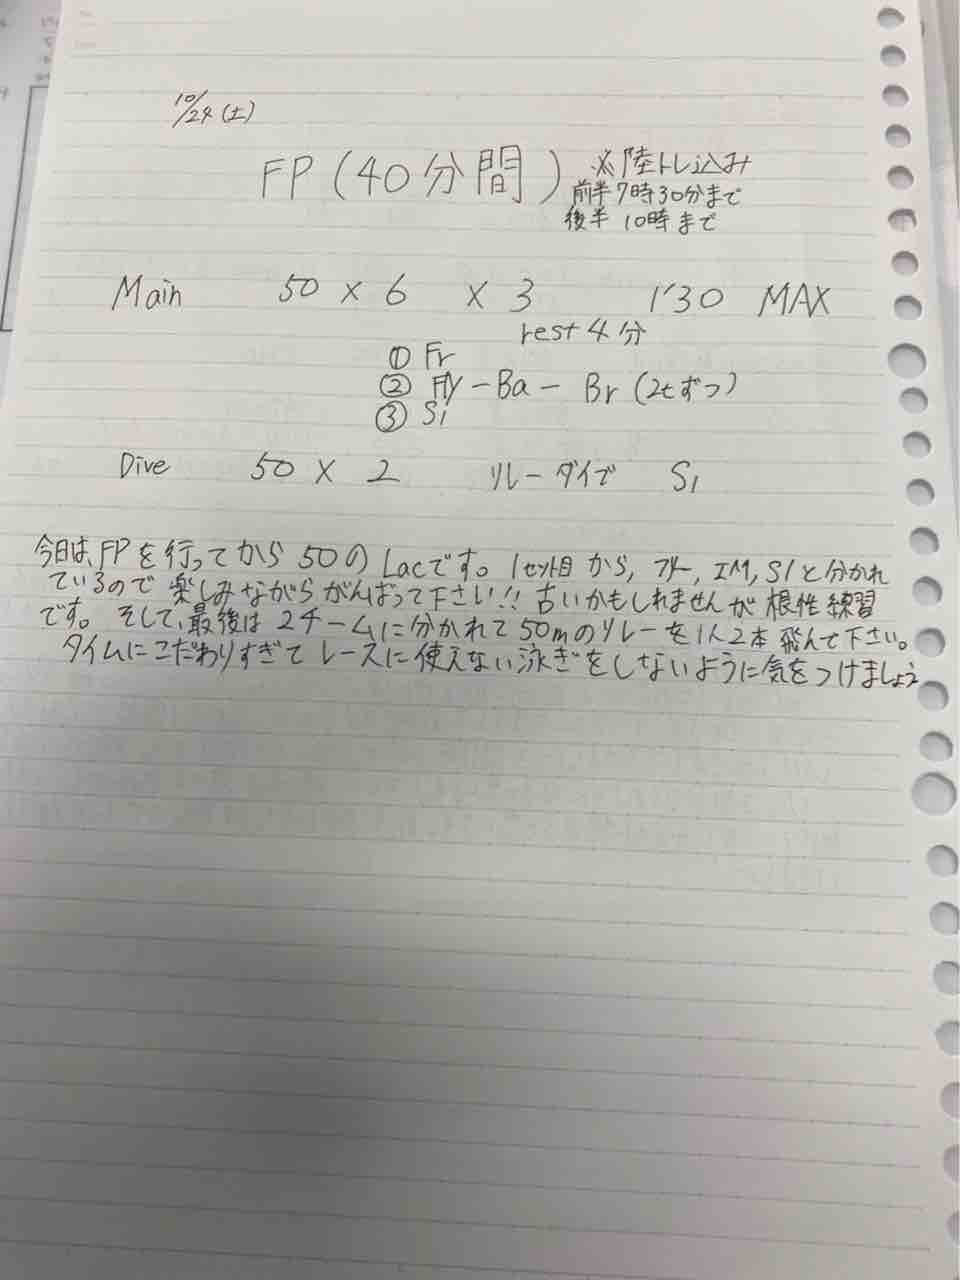 10/24(土)
FP(40分間) ※陸トレ込み
前半7時30分まで
後半 10時まで
Main 50 × 6 × 3 1'30 MAX
rest 4分
① Fr
② Fly - Ba - Br (2tずつ)
③ S1
Dive 50 × 2 リレーダイブ S1
今日は、FPを行ってから50のLacです。1セット目から、フリー, IM, S1と分かれ
ているので楽しみながらがんばって下さい!! 古いかもしれませんが根性練習
です。そして、最後は2チームに分かれて50mのリレーを1人2本飛んで下さい。
タイムにこだわりすぎてレースに使えない泳ぎをしないように気をつけましょう